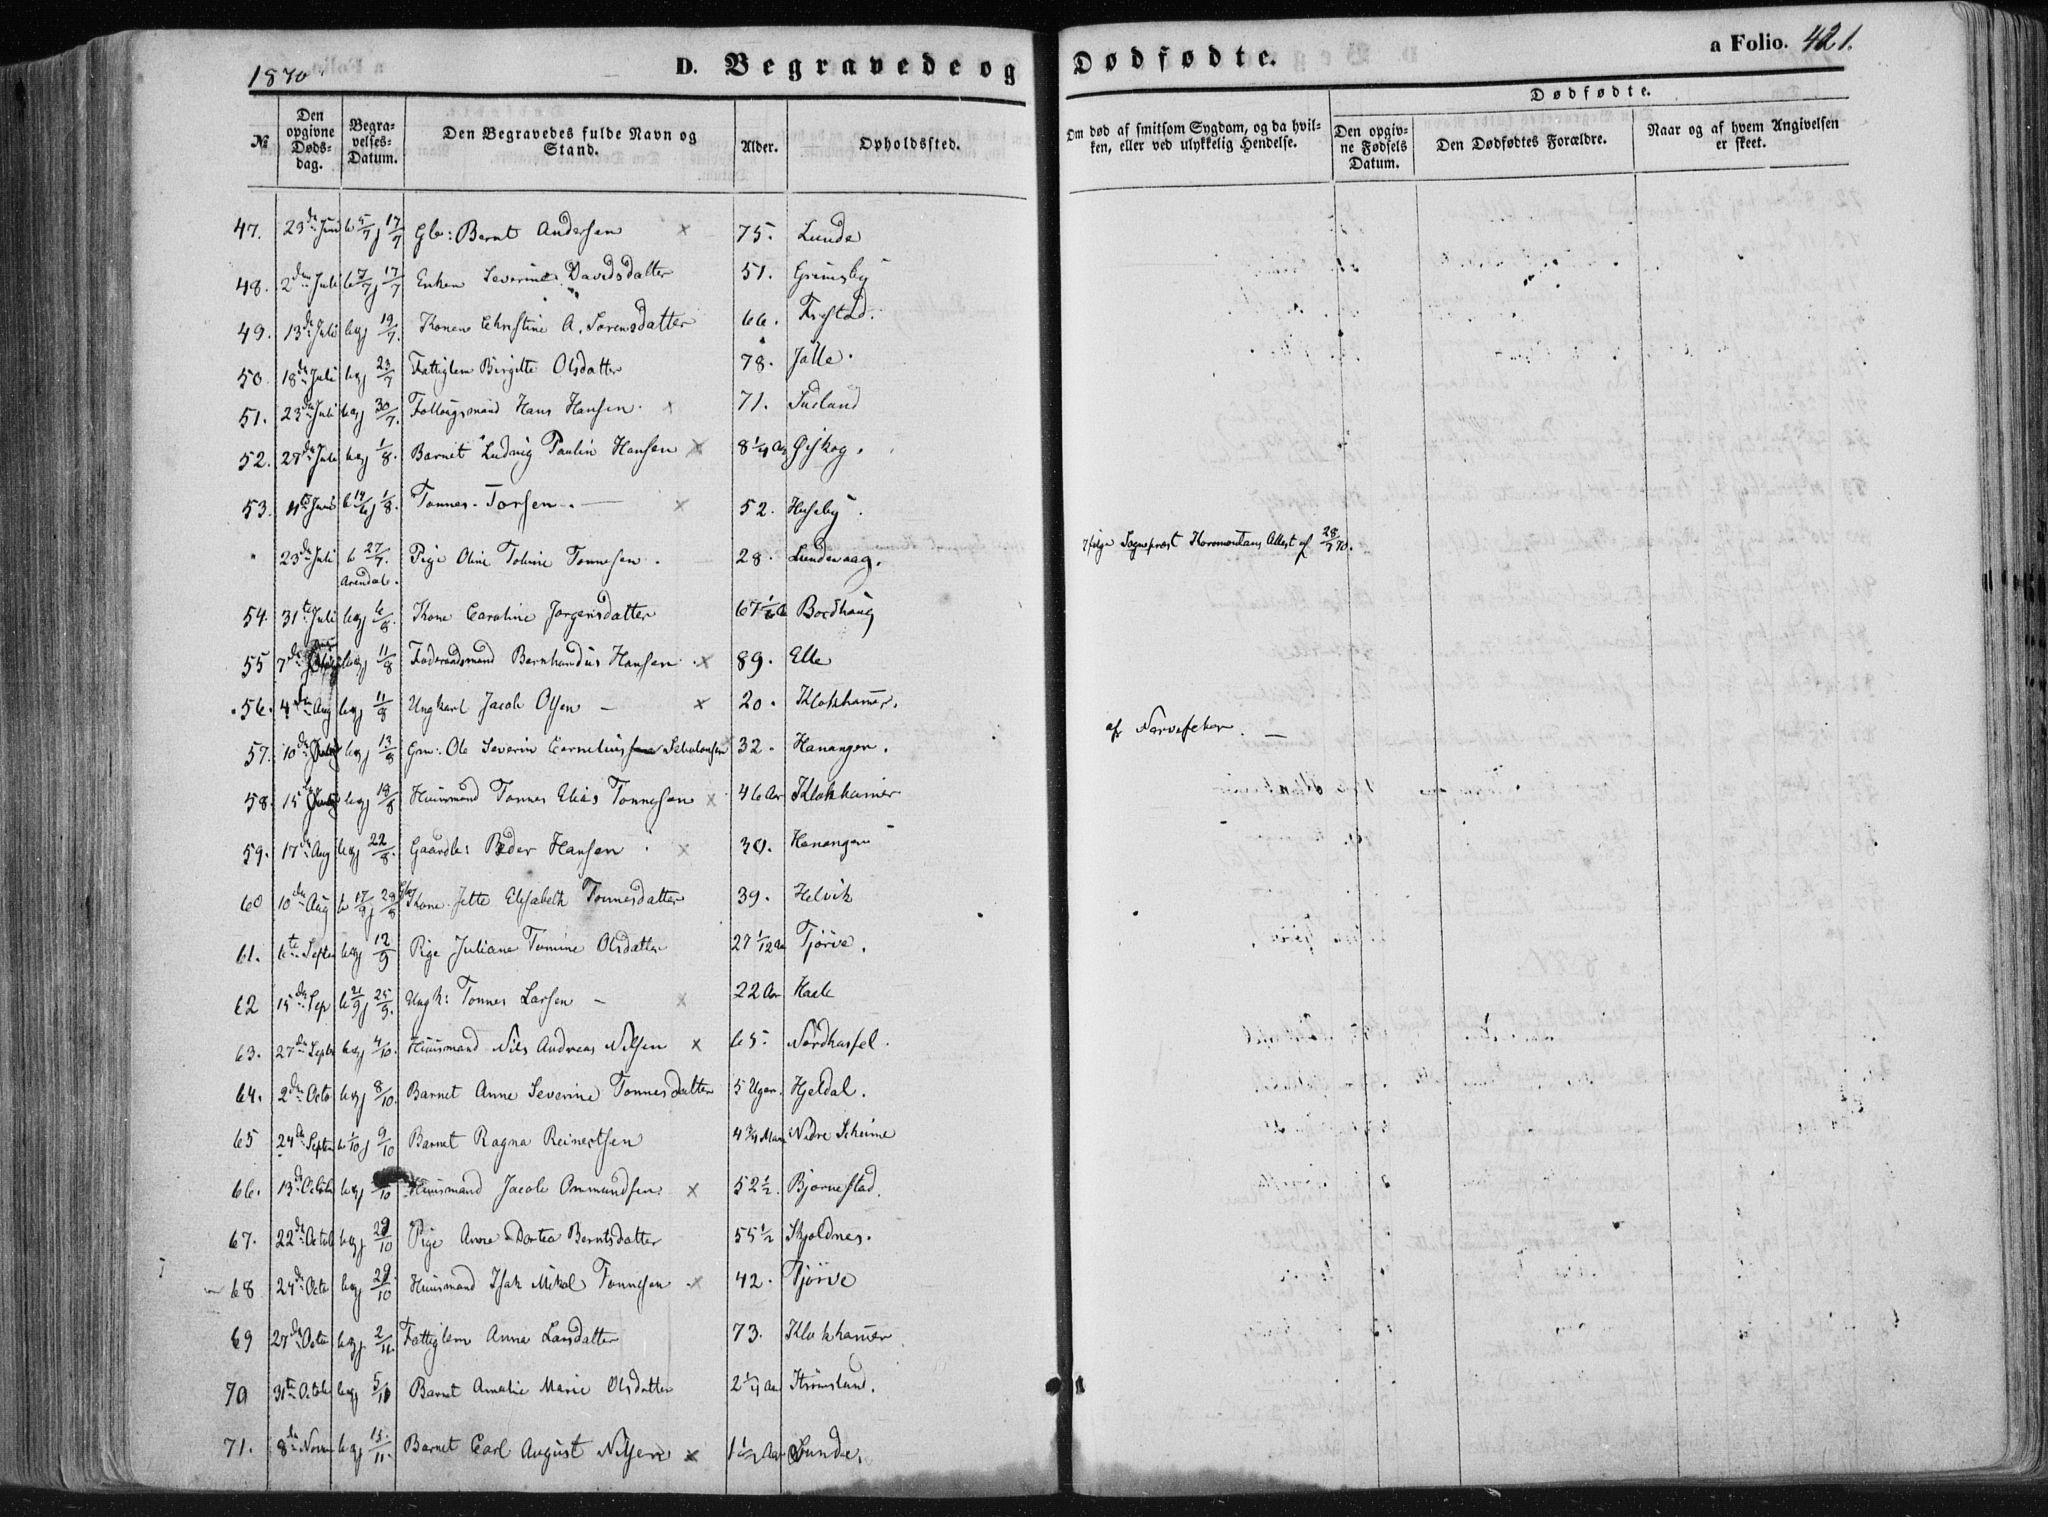 1870
D. Begravede og Dødfødte.
a Folio. 421.
№
Den opgivne Døds-dag.
Begra-velses-Datum.
Den Begravedes fulde Navn og Stand.
Alder.
Opholdssted.
Om død af smitsom Sygdom, og da hvil-ken, eller ved ulykkelig Hendelse.
Dødfødte.
Den opgiv-ne Fødsels Datum.
Den Dødfødtes Forældre.
Naar og af hvem Angivelsen er skeet.
47. 23de Juni b 5/7 j 17/7 Gbr: Bernt Andersen × 75. Lunde
48. 2den Juli b 7/7 j 17/7 Enken Severine Davidsdatter 51. Grimsby
49. 13de Juli b og j 19/7. Konen Christine A. Sørensdatter 66.
50. 18de Juli b og j 23/7 Fattiglem Birgitte Olsdatter 78. Jølle.
51. 23de Juli b og j 30/7. Hans Hansen. × 71.
52. 28de Juli b og j 1/8. Barnet Ludvig Paulin Hansen × 8 1/4 Aar
53. Juni j 1/8. Tønnes Torsen. — × 52. Huseby.
" 23de Juli b 27/7. Arendal. Pige Oline Tobine Tønnesen. 28. Lundevaag. Ifølge Sognepræst Attest af 28/7 70.
54. 31te Juli b og j 6/8 Kone Caroline Jørgensdatter 67 1/2 Bordhaug
55 7de b og j 11/8 Føderaadsmand Bernhardus Hansen × 89. Elle
56. 4de Aug b og j 11/8 Ungkarl Jacob Olsen — × 20. Klokhamer. af Nervefeber. —
57. 10de b og j 13/8 Grm: Ole Severin Cornelius 32. Hananger.
58. 15de b og j 18/8 Huusmand Tønnes Elias Tønnesen × 46 Aar Klokhamer
59. 17de Aug b og j 22/8. Gaardbr: Peder Hansen × 30. Hananger
60 10de Aug Kone Jette Elisabeth Tønnesdatter 39. Helvik
61. 6te Septbr b og j 12/9 Pige Juliane Tomine Olsdatter 27 1/12 Aar Tjørve.
62 15de Sep b 21/9 j 25/9. Ungk: Tønnes Larsen — × 22 Aar Haale
63. 27de Septb b og j 4/10. Huusmand Nils Andreas Nilsen × 65. Nordhassel.
64. 2den Octo b og j 8/10. Barnet Anne Severine Tønnesdatter 5 Uger. Hjeldal.
65 24de Septbr b 1/10 j 9/10 Barnet Ragna Reinertsen 4 3/4 Maan Nedre Skeime
66. 13de Octob b og j /10 Huusmand Jacob Ommundsen × 52 1/2. Bjørnestad.
67. 22de Octob b og j 29/10 Pige Anne Dortea Berntsdatter 55 1/2 Skjoldnes.
68 24de Octo b og j 29/10 Huusmand Isak Mikal Tønnesen × 42. Tjørve
69 27de Octo b og j 2/11. Fattiglem Anna Larsdatter 73. Klokhamer
70 31te Octob b og j 5/11 Barnet Amalie Marie Olsdatter 2 1/4 Aar Strømsland.
71. 8de Novem b og j 15/11. Barnet Carl August Nilsen × 1 1/2 Aar Lunde.